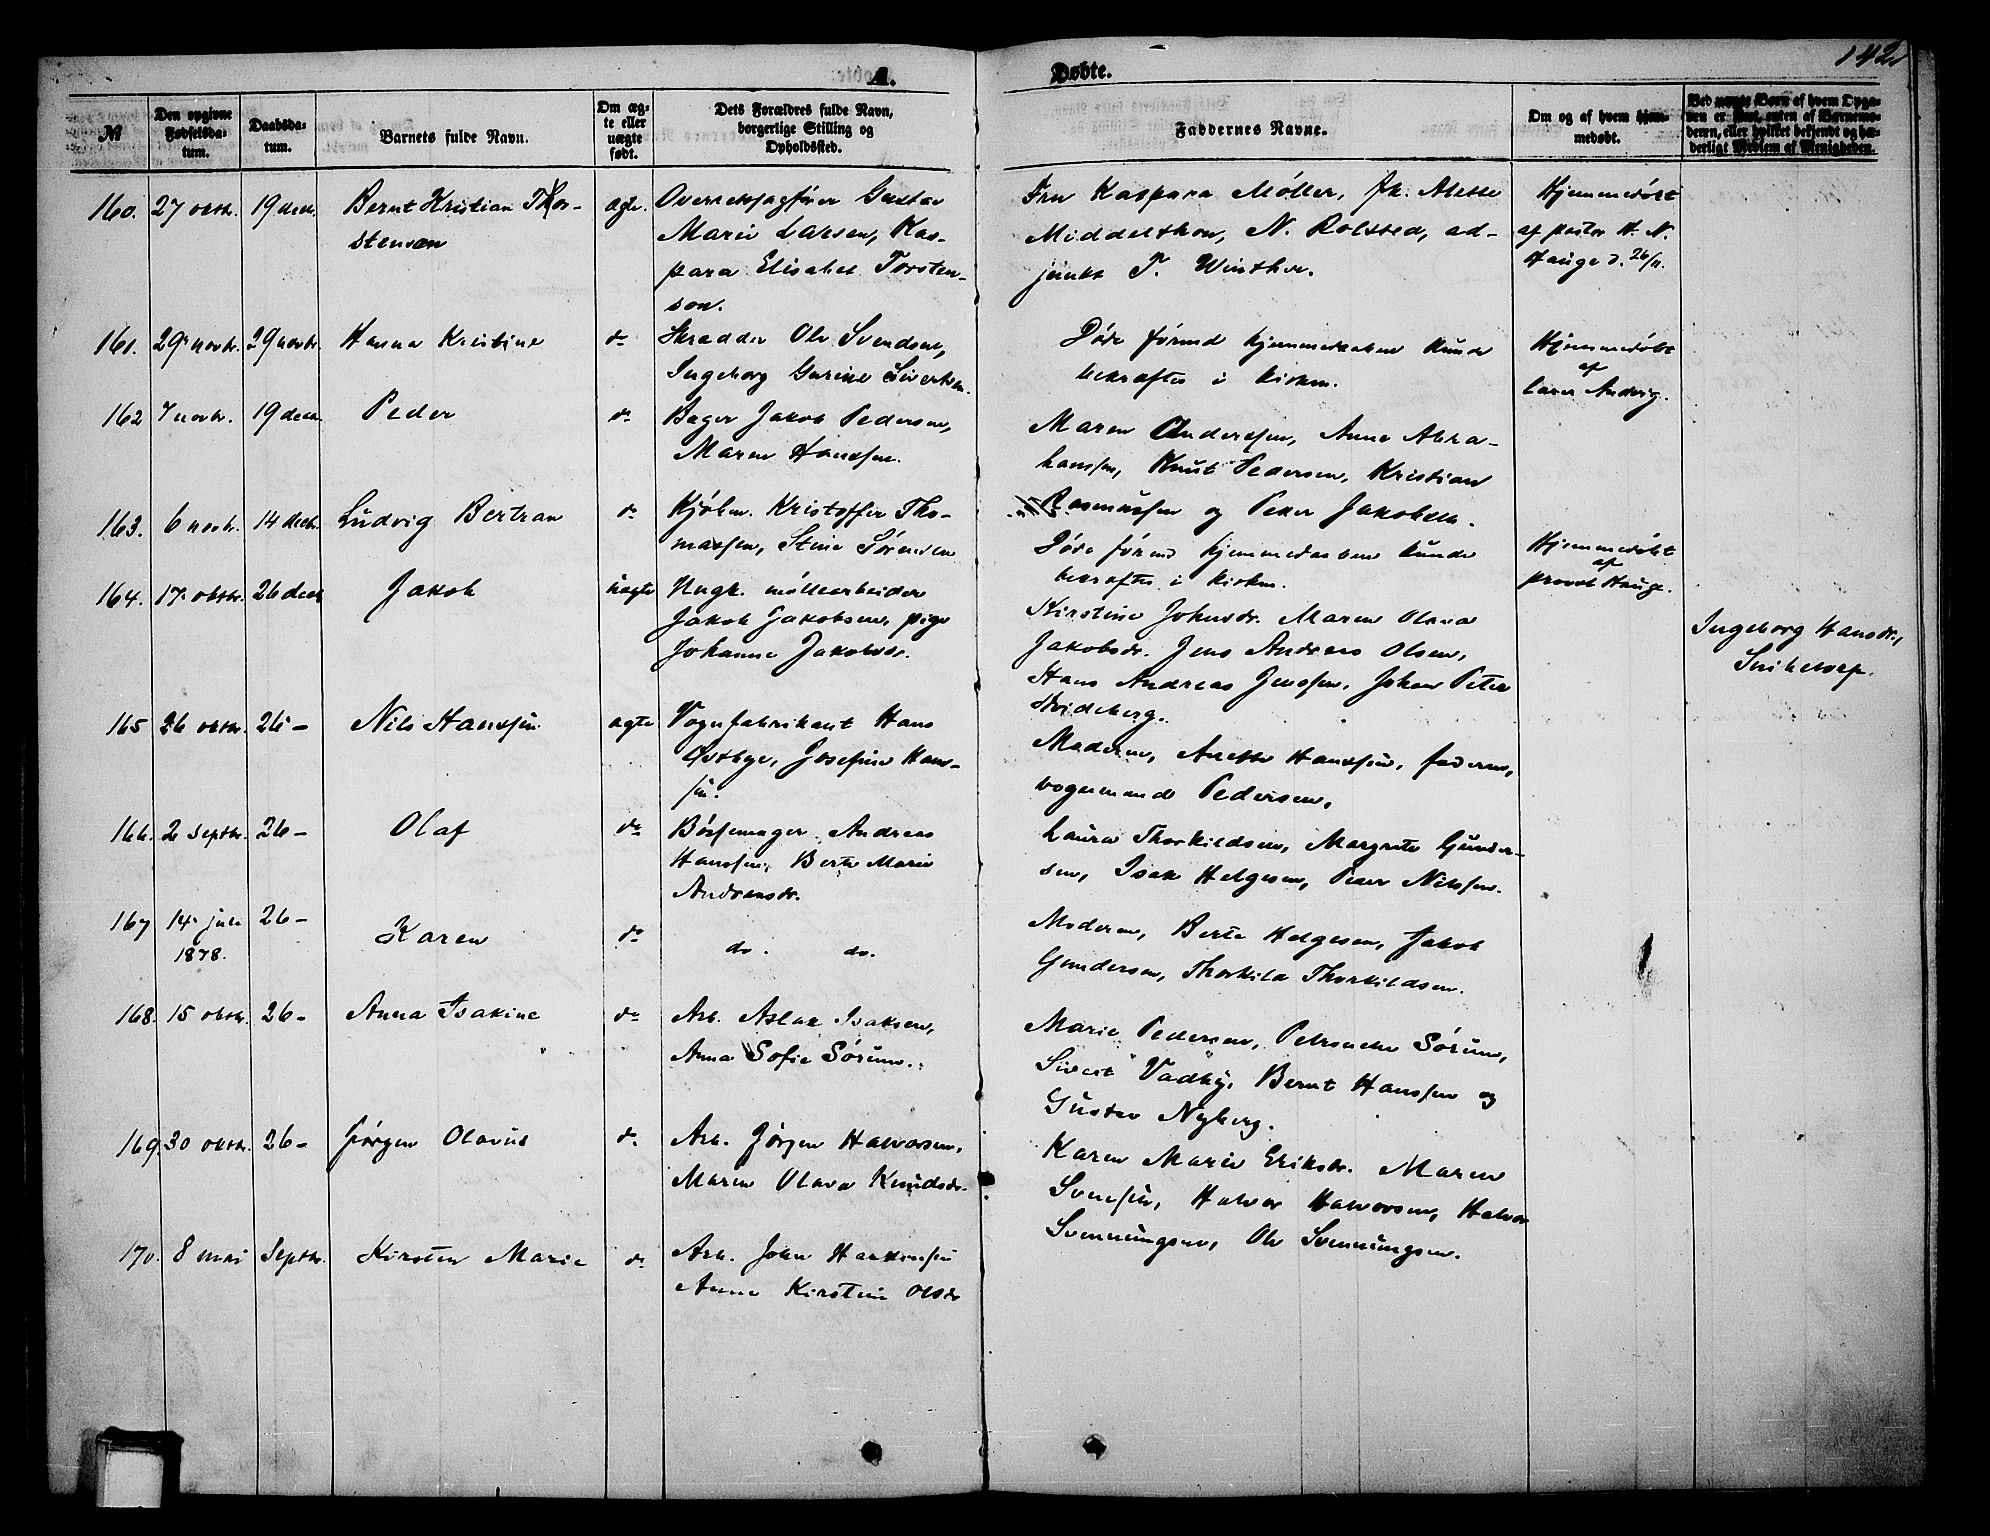 142
A. Døbte.
№
Den opgivne Fødselsdatum.
Daabsdatum.
Barnets fulde Navn.
Om ægte eller uægte født.
Dets Forældres fulde Navn, borgerlige Stilling og Opholdssted.
Faddernes Navne.
Om og af hvem hjemmedøbt.
160. 27 oktbr. 19 decbr. Bernt Kristian Thor- ægte. Oversagfører Gustav
stensen Marie Larsen, Kas-
para Elisabet Torsten-
son.
Fru Kaspara Møller, fk. Alette
Middelthon, N. Rolsted, ad-
junkt T. Winther.
Hjemmedøbt
af pastor H. N.
Hauge d. 26/11.
161. 29 novbr. 29 novbr. Hanna Kristine do Skrædder Ole Svendsen,
Ingeborg Gurine Sivertsen.
Døde førend hjemmedaaben kunde
bekræftes i kirken.
Hjemmedøbt
af
lærer Andvig.
162 7 novbr. 19 decbr. Peder do Bager Jakob Pedersen,
Maren Hanssen.
Maren Anderssen, Anne Abra-
hamssen, Knut Pedersen, Kristian
Rasmussen og Peter Jakobsen.
163. 6 novbr. 14 decbr. Ludvig Bertran do Kjøbm. Kristoffer Tho-
massen, Stine Sørensen
Døde førend hjemmedaaben kunde
bekræftes i kirken.
Hjemmedøbt
af
provst Hauge.
164. 17 oktbr. 26 decbr Jakob uægte Ungk. møllearbeider
Jakob Jakobsen, pige
Johanne Jakobsdr.
Kirstine Johnsdr. Maren Olava
Jakobsdr. Jens Andreas Olsen,
Hans Andreas Jenssen, Johan Peter
Hvideberg.
Ingeborg Hansdr.,
165 26 oktbr. 26 – Nils Hanssen ægte Vognfabrikant Hans
Østbye, Josefine Hans-
sen.
Moderen, Anette Hanssen, faderen,
vognmand Pedersen,
166. 2 septbr. 26 – Olaf do Børsemager Andreas
Hanssen, Berte Marie
Andreasdr.
Laura Thorkildsen, Margrete Gunder-
sen, Isak Helgesen, Peder Nilssen.
167 14 juli 26 –
1878. Karen do do. do.
Moderen, Berte Helgesen, Jakob
Gundersen, Thorkild Thorkildsen.
168. 15 oktbr. 26 – Anna Isakine do Arb. Aslak Isaksen,
Anna Sofie Sørum.
Marie Pedersen, Petronelle Sørum,
Sivert Vadby, Bernt Hanssen og
Gustav Nyberg.
169. 30 oktbr. 26 – Jørgen Olavus do. Arb. Jørgen Halvorsen,
Maren Olava Knudsdr.
Karen Marie Eriksdr. Maren
Svensen, Halvor Halvorsen, Halvor
Svenningsen, Ole Svenningsen.
170. 8 mai Septbr. Kirsten Marie do Arb. John Haakensen
Anne Kirstine Olsdr